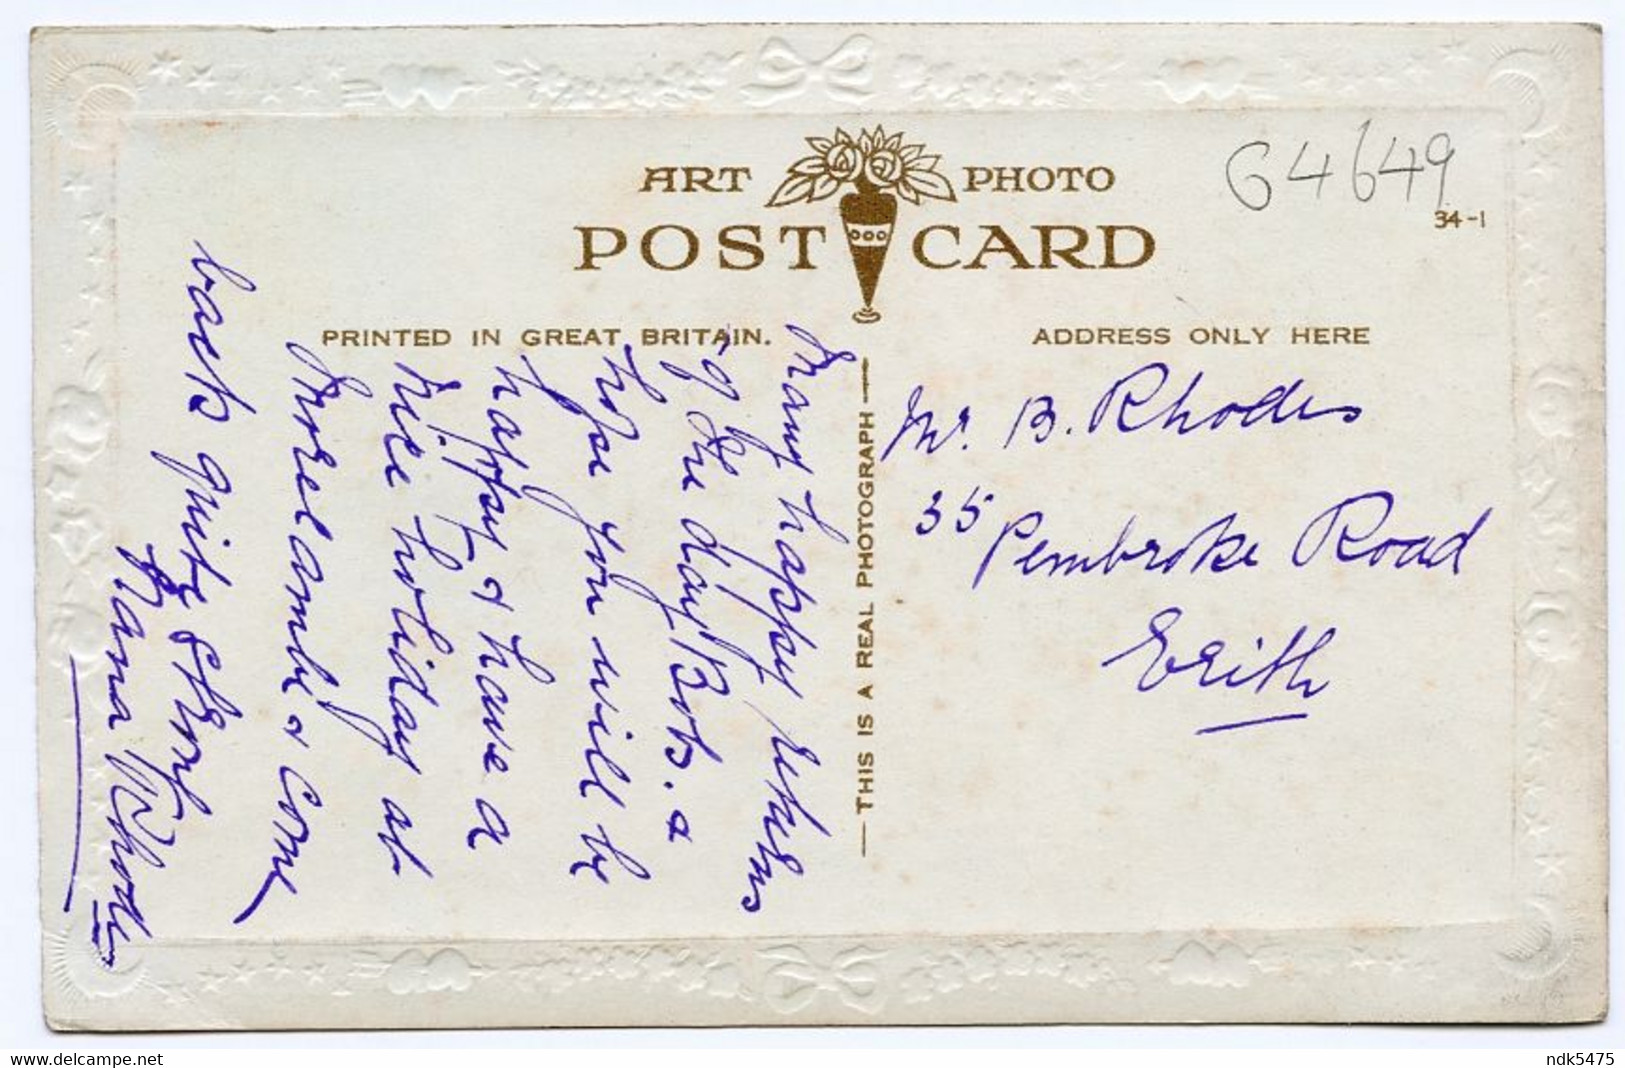 G4649
ART PHOTO
POST CARD
34-1
PRINTED IN GREAT BRITAIN.
ADDRESS ONLY HERE
THIS IS A REAL PHOTOGRAPH
Many happy returns
of the day Bob. &
hope you will be
happy & have a
nice holiday at
Morecambe & come
back quite strong
Nana Rhodes
Mr. B. Rhodes
35 Pembroke Road
Erith
delcampe.net
ndk5475